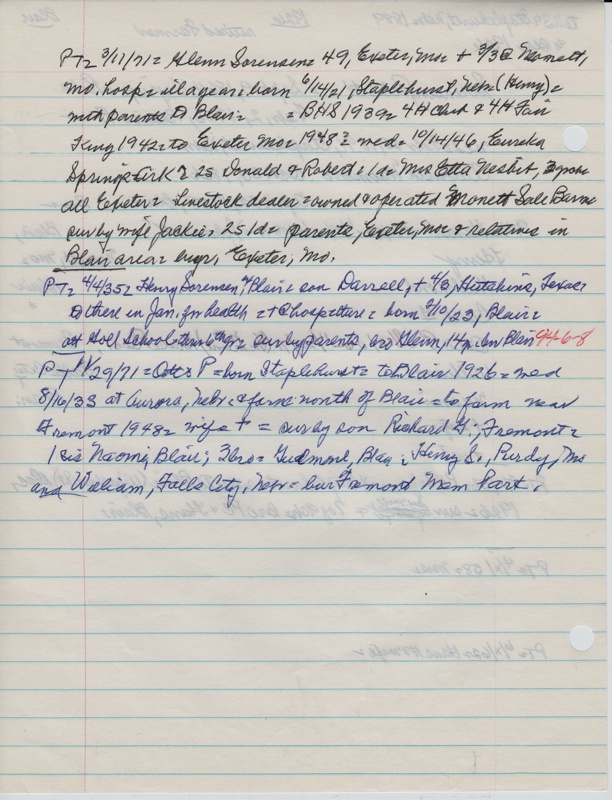 PT= 3/11/71= Glenn Sorensen= 49, Exeter, Mo= + 3/3 @ Monett,
Mo. hosp= ill a year= born 6/14/21, Staplehurst, Nebr (Henry)=
parents Blair= = BHS 1939= 4H Club & 4H Fair
King 1942= to Exeter Mo= 1948= wed= 10/14/46, Eureka
Springs Ark= 2s Donald & Robert= 1d= Mrs Etta Nesbit,
all Exeter= Livestock dealer= owned & operated Monett Sale Barn=
sur by wife Jackie= 2s 1d= parents, Exeter, Mo= & relatives in
Blair area= bur, Exeter, Mo.
PT= 4/4/35= Henry Sorensen, Blair= son Darrell, + 4/3, Hutchins, Texas=
there in Jan. for health = + @ hosp there= born 2/10/23, Blair=
att School = sur by parents, bro Glenn, 14= bur Blair 94-6-8
PT 11/29/71= Otto S P= born Staplehurst= to Blair 1926= wed
8/16/33 at Aurora, Nebr= & farm north of Blair= to farm near
Fremont 1948= wife + = sur by son Richard G., Fremont=
1 sis Naomi, Blair; 3 bro= Gudmond, Blair; Henry S., Purdy, Mo
and William, Falls City, Nebr= bur Fremont Mem Park.